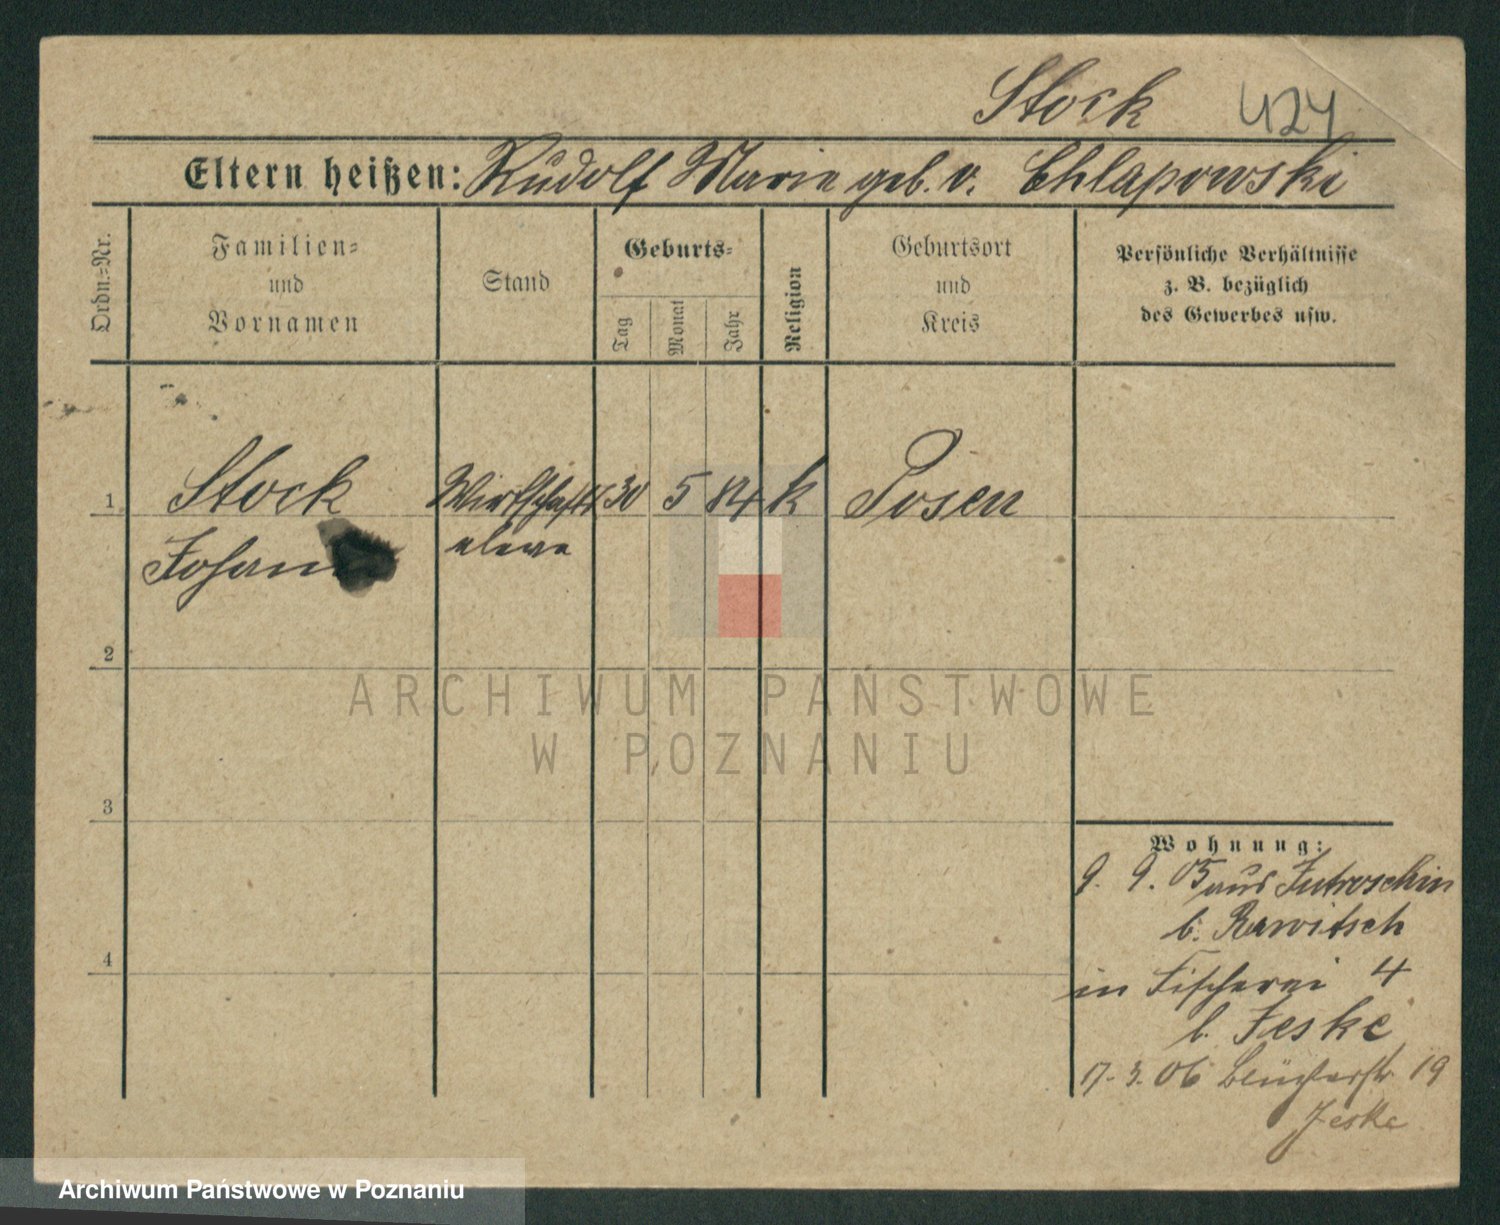 Stock 424
Eltern heißen: Rudolf Marie geb. v. Chlapowski
Ordn.-Nr.
Familien-
und
Vornamen
Stand
Geburts-
Tag
Monat
Jahr
Religion
Geburtsort
und
Kreis
Persönliche Verhältnisse
z. B. bezüglich
des Gewerbes usw.
1 Stock Wirtschafts 30 5 84 k Posen
Johann eleve
2
3
4
Wohnung:
9. 9. 05 aus Jutroschin
b. Rawitsch
in Fischerei 4
b. Jeske
17. 3. 06 19
Jeske
ARCHIWUM PAŃSTWOWE
W POZNANIU
Archiwum Państwowe w Poznaniu